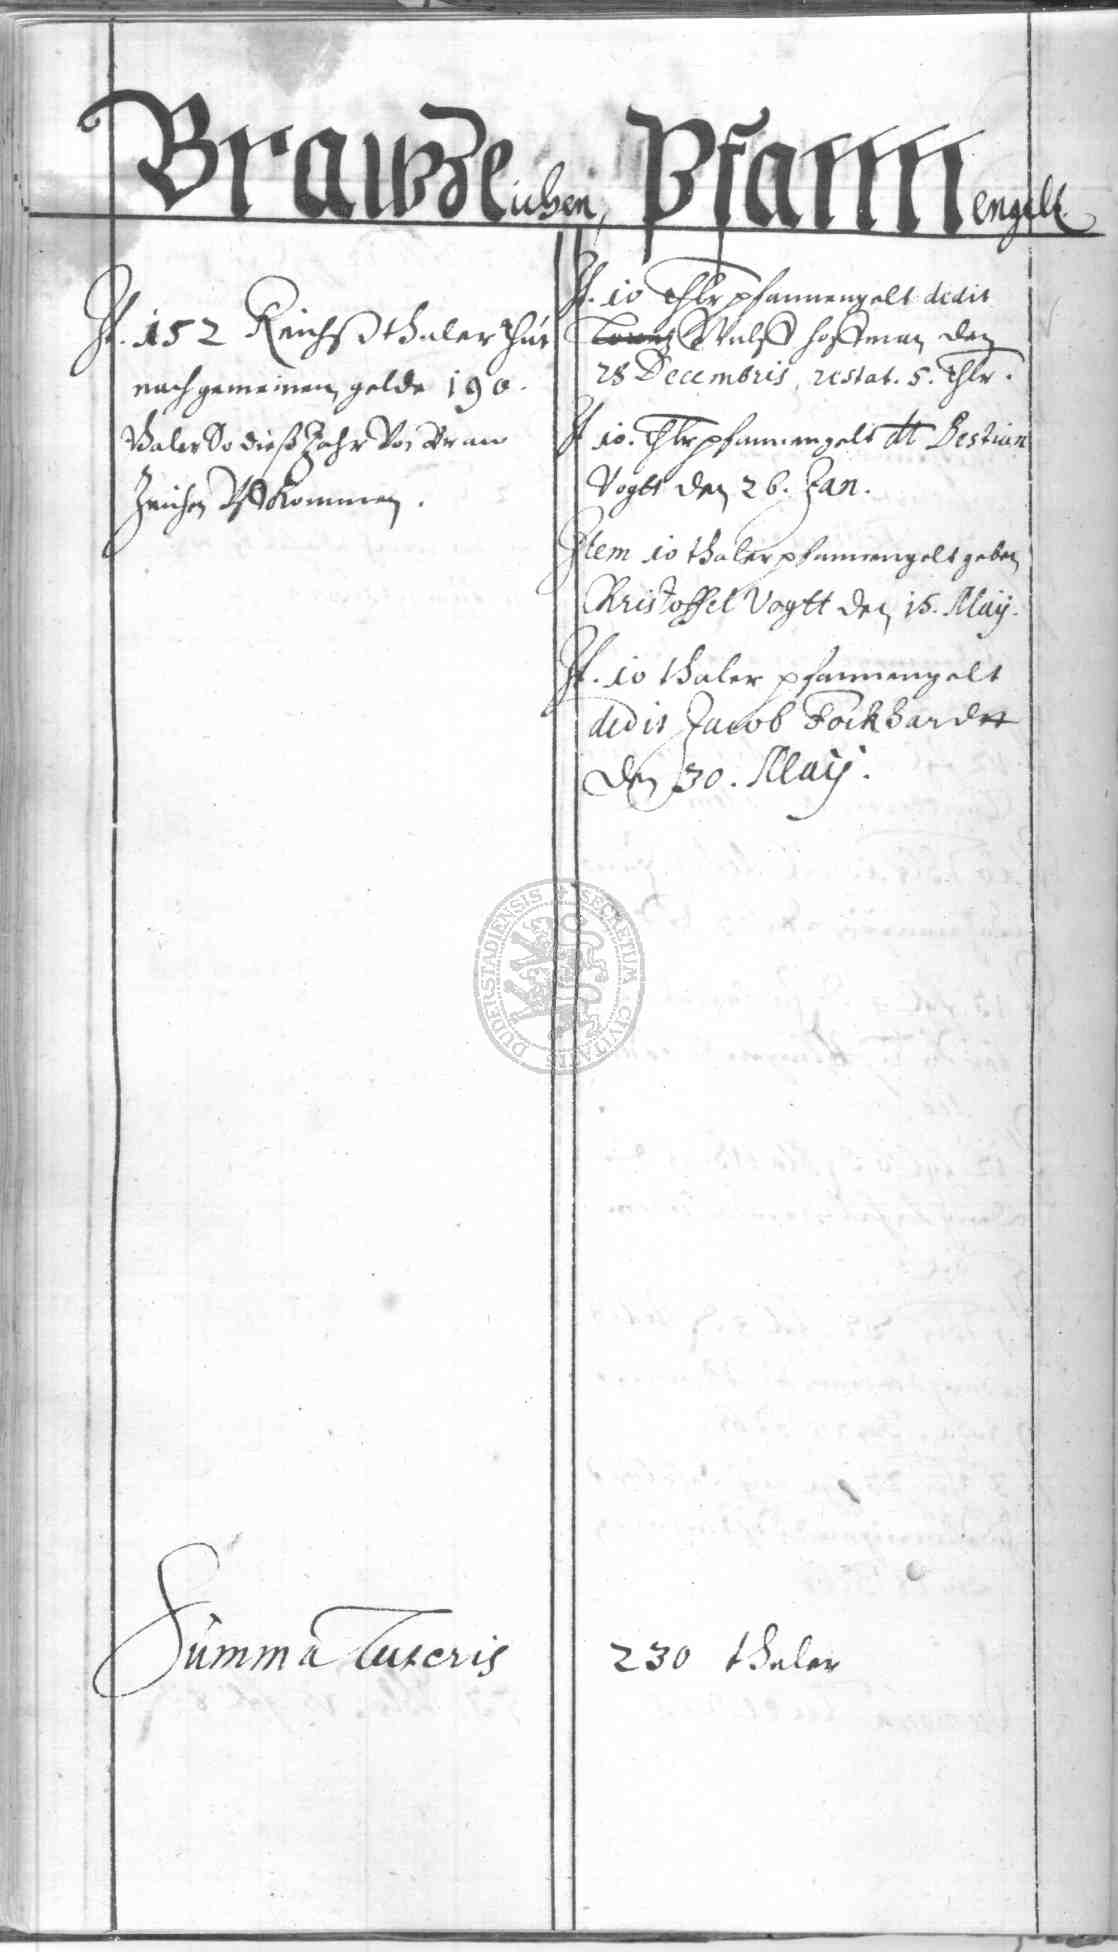 Brawzeichen, Pfannengelt.
It. 152 Reichsthaler thut
nach gemeinen gelde 190.
thaler So dieß Jahr Von Braw
Zeichen Vffkommen.
It. 10 Thlr pfannengelt dedit
Wulff Hoffman den
28 Decembris, restat. 5. Thlr.
It 10. Thlr pfannengelt dt Bestian
Vogtt den 26. Jan.
Item 10 thaler pfannengelt geben
Christoffel Vogtt den 15. Maij.
It. 10 thaler pfannengelt
dedit Jacob Fockhardtt
den 30. Maij.
DUDERSTADIENSIS SECRETUM CIVITATIS
Summa Lateris 230 thaler